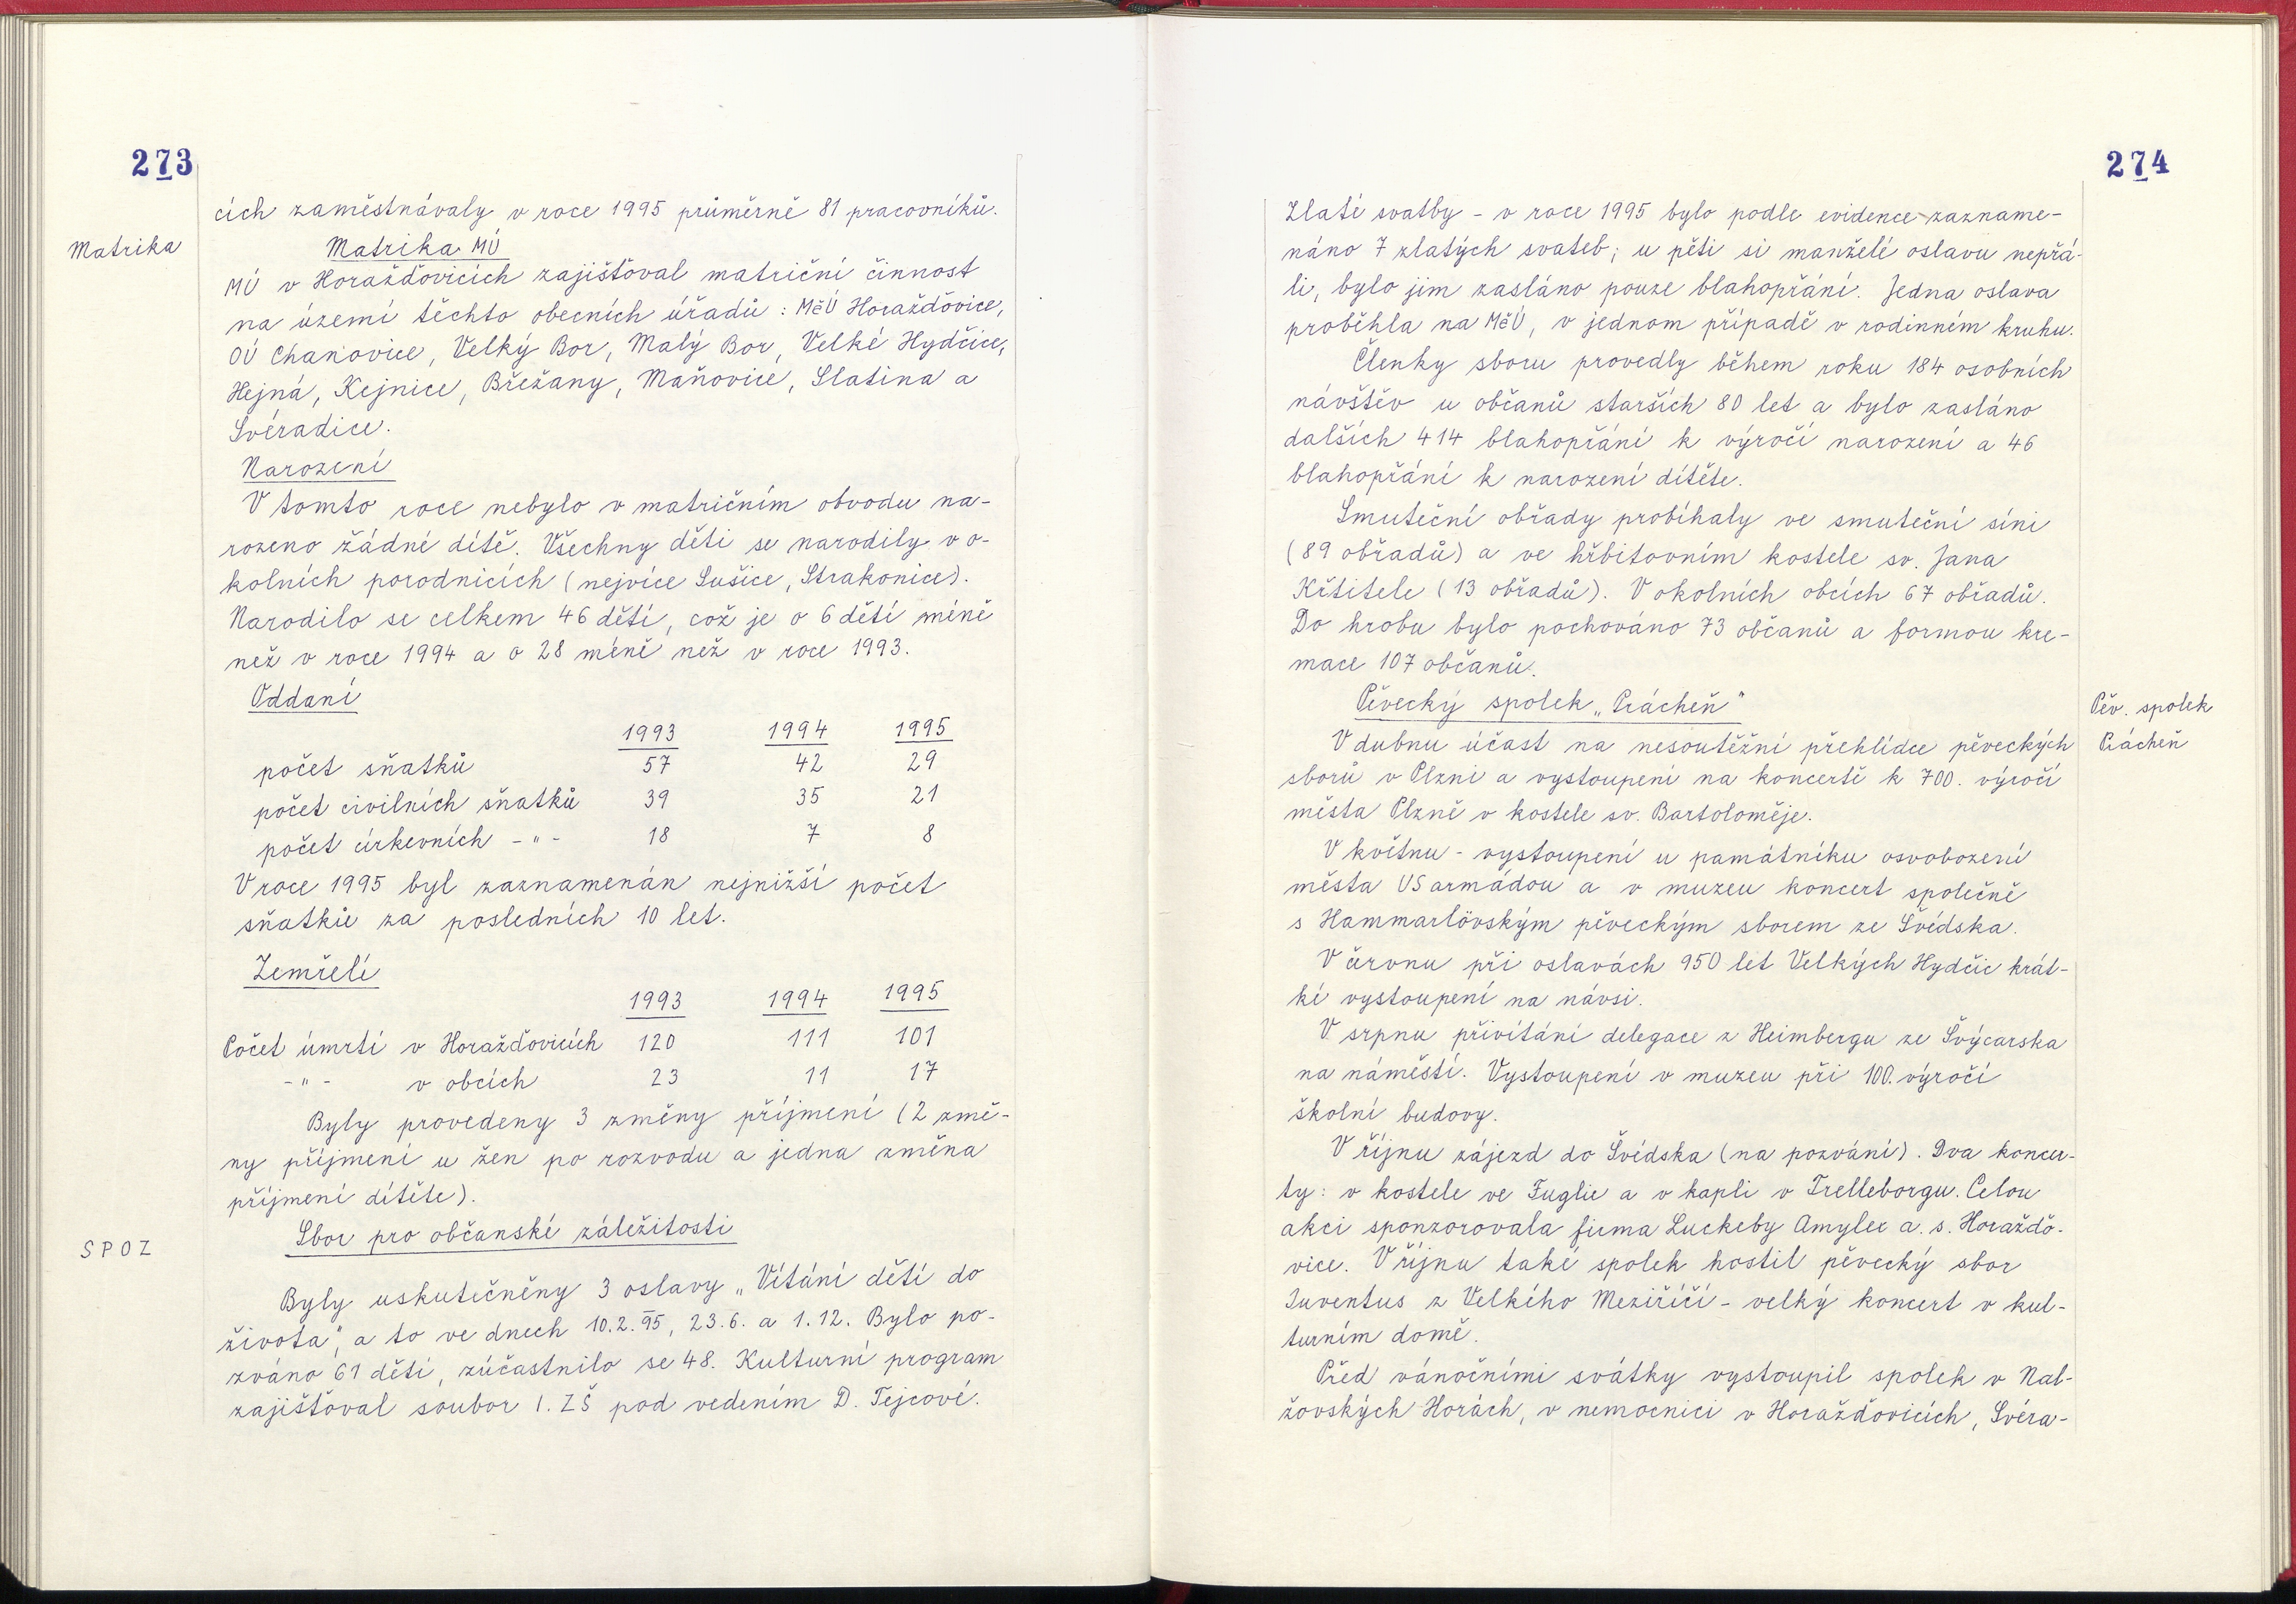 273
cích zaměstnávaly v roce 1995 průměrně 81 pracovníků.
Matrika
Matrika MÚ
MÚ v Horažďovicích zajišťoval matriční činnost
na území těchto obecních úřadů : MěÚ Horažďovice,
OÚ Chanovice, Velký Bor, Malý Bor, Velké Hydčice,
Hejná, Kejnice, Břežany, Maňovice, Slatina a
Svéradice.
Narození
V tomto roce nebylo v matričním obvodu na-
rozeno žádné dítě. Všechny děti se narodily v o-
kolních porodnicích (nejvíce Sušice, Strakonice).
Narodilo se celkem 46 dětí, což je o 6 dětí méně
než v roce 1994 a o 28 méně než v roce 1993.
Oddaní
1993 1994 1995
počet sňatků 57 42 29
počet civilních sňatků 39 35 21
počet církevních -"- 18 7 8
V roce 1995 byl zaznamenán nejnižší počet
sňatků za posledních 10 let.
Zemřelí
1993 1994 1995
Počet úmrtí v Horažďovicích 120 111 101
-"- v obcích 23 11 17
Byly provedeny 3 změny příjmení (2 změ-
ny příjmení u žen po rozvodu a jedna změna
příjmení dítěte).
SPOZ
Sbor pro občanské záležitosti
Byly uskutečněny 3 oslavy „Vítání dětí do
života", a to ve dnech 10.2.95, 23.6. a 1.12. Bylo po-
zváno 61 dětí, zúčastnilo se 48. Kulturní program
zajišťoval soubor I. ZŠ pod vedením D. Tejcové.
274
Zlaté svatby - v roce 1995 bylo podle evidence zazname-
náno 7 zlatých svateb; u pěti si manželé oslavu nepřá-
li, bylo jim zasláno pouze blahopřání. Jedna oslava
proběhla na MěÚ, v jednom případě v rodinném kruhu.
Členky sboru provedly během roku 184 osobních
návštěv u občanů starších 80 let a bylo zasláno
dalších 414 blahopřání k výročí narození a 46
blahopřání k narození dítěte.
Smuteční obřady probíhaly ve smuteční síni
(89 obřadů) a ve hřbitovním kostele sv. Jana
Křtitele (13 obřadů). V okolních obcích 67 obřadů.
Do hrobu bylo pochováno 73 občanů a formou kre-
mace 107 občanů.
Pěvecký spolek „Prácheň"
Pěv. spolek
Prácheň
V dubnu účast na nesoutěžní přehlídce pěveckých
sborů v Plzni a vystoupení na koncertě k 700. výročí
města Plzně v kostele sv. Bartoloměje.
V květnu - vystoupení u památníku osvobození
města US armádou a v muzeu koncert společně
s Hammarlövským pěveckým sborem ze Švédska.
V červnu při oslavách 950 let Velkých Hydčic krát-
ké vystoupení na návsi.
V srpnu přivítání delegace z Heimbergu ze Švýcarska
na náměstí. Vystoupení v muzeu při 100. výročí
školní budovy.
V říjnu zájezd do Švédska (na pozvání). Dva koncer-
ty: v kostele ve Fuglie a v kapli v Trelleborgu. Celou
akci sponzorovala firma Luckeby Amylex a. s. Horažďo-
vice. V říjnu také spolek hostil pěvecký sbor
Juventus z Velkého Meziříčí - velký koncert v kul-
turním domě.
Před vánočními svátky vystoupil spolek v Nal-
žovských Horách, v nemocnici v Horažďovicích, Svéra-